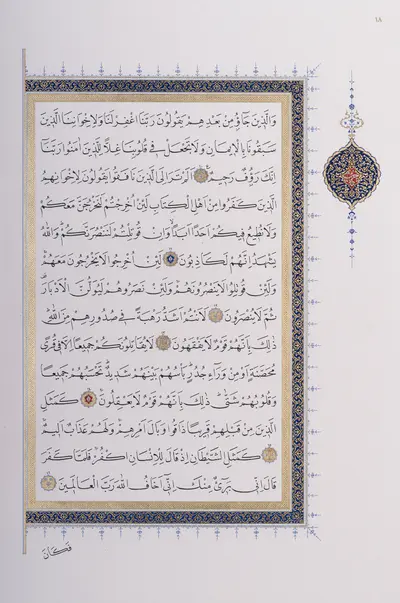 ١٨
وَالَّذِينَ جَاؤُ مِنْ بَعْدِهِمْ يَقُولُونَ رَبَّنَا اغْفِرْ لَنَا وَلِاِخْوَانِنَا الَّذِينَ
سَبَقُونَا بِالْاِيمَانِ وَلَا تَجْعَلْ فِى قُلُوبِنَا غِلًّا لِلَّذِينَ اٰمَنُوا رَبَّنَا
اِنَّكَ رَؤُفٌ رَحِيمٌ اَلَمْ تَرَ اِلَى الَّذِينَ نَافَقُوا يَقُولُونَ لِاِخْوَانِهِمُ
الَّذِينَ كَفَرُوا مِنْ اَهْلِ الْكِتَابِ لَئِنْ اُخْرِجْتُمْ لَنَخْرُجَنَّ مَعَكُمْ
وَلَا نُطِيعُ فِيكُمْ اَحَدًا اَبَدًا وَاِنْ قُوتِلْتُمْ لَنَنْصُرَنَّكُمْ وَاللّٰهُ
يَشْهَدُ اِنَّهُمْ لَكَاذِبُونَ لَئِنْ اُخْرِجُوا لَا يَخْرُجُونَ مَعَهُمْ
وَلَئِنْ قُوتِلُوا لَا يَنْصُرُونَهُمْ وَلَئِنْ نَصَرُوهُمْ لَيُوَلُّنَّ الْاَدْبَارَ
ثُمَّ لَا يُنْصَرُونَ لَاَنْتُمْ اَشَدُّ رَهْبَةً فِى صُدُورِهِمْ مِنَ اللّٰهِ
ذٰلِكَ بِاَنَّهُمْ قَوْمٌ لَا يَفْقَهُونَ لَا يُقَاتِلُونَكُمْ جَمِيعًا اِلَّا فِى قُرًى
مُحَصَّنَةٍ اَوْ مِنْ وَرَاءِ جُدُرٍ بَاْسُهُمْ بَيْنَهُمْ شَدِيدٌ تَحْسَبُهُمْ جَمِيعًا
وَقُلُوبُهُمْ شَتّٰى ذٰلِكَ بِاَنَّهُمْ قَوْمٌ لَا يَعْقِلُونَ كَمَثَلِ
الَّذِينَ مِنْ قَبْلِهِمْ قَرِيبًا ذَاقُوا وَبَالَ اَمْرِهِمْ وَلَهُمْ عَذَابٌ اَلِيمٌ
كَمَثَلِ الشَّيْطَانِ اِذْ قَالَ لِلْاِنْسَانِ اكْفُرْ فَلَمَّا كَفَرَ
قَالَ اِنِّى بَرِىءٌ مِنْكَ اِنِّى اَخَافُ اللّٰهَ رَبَّ الْعَالَمِينَ
فَكَانَ